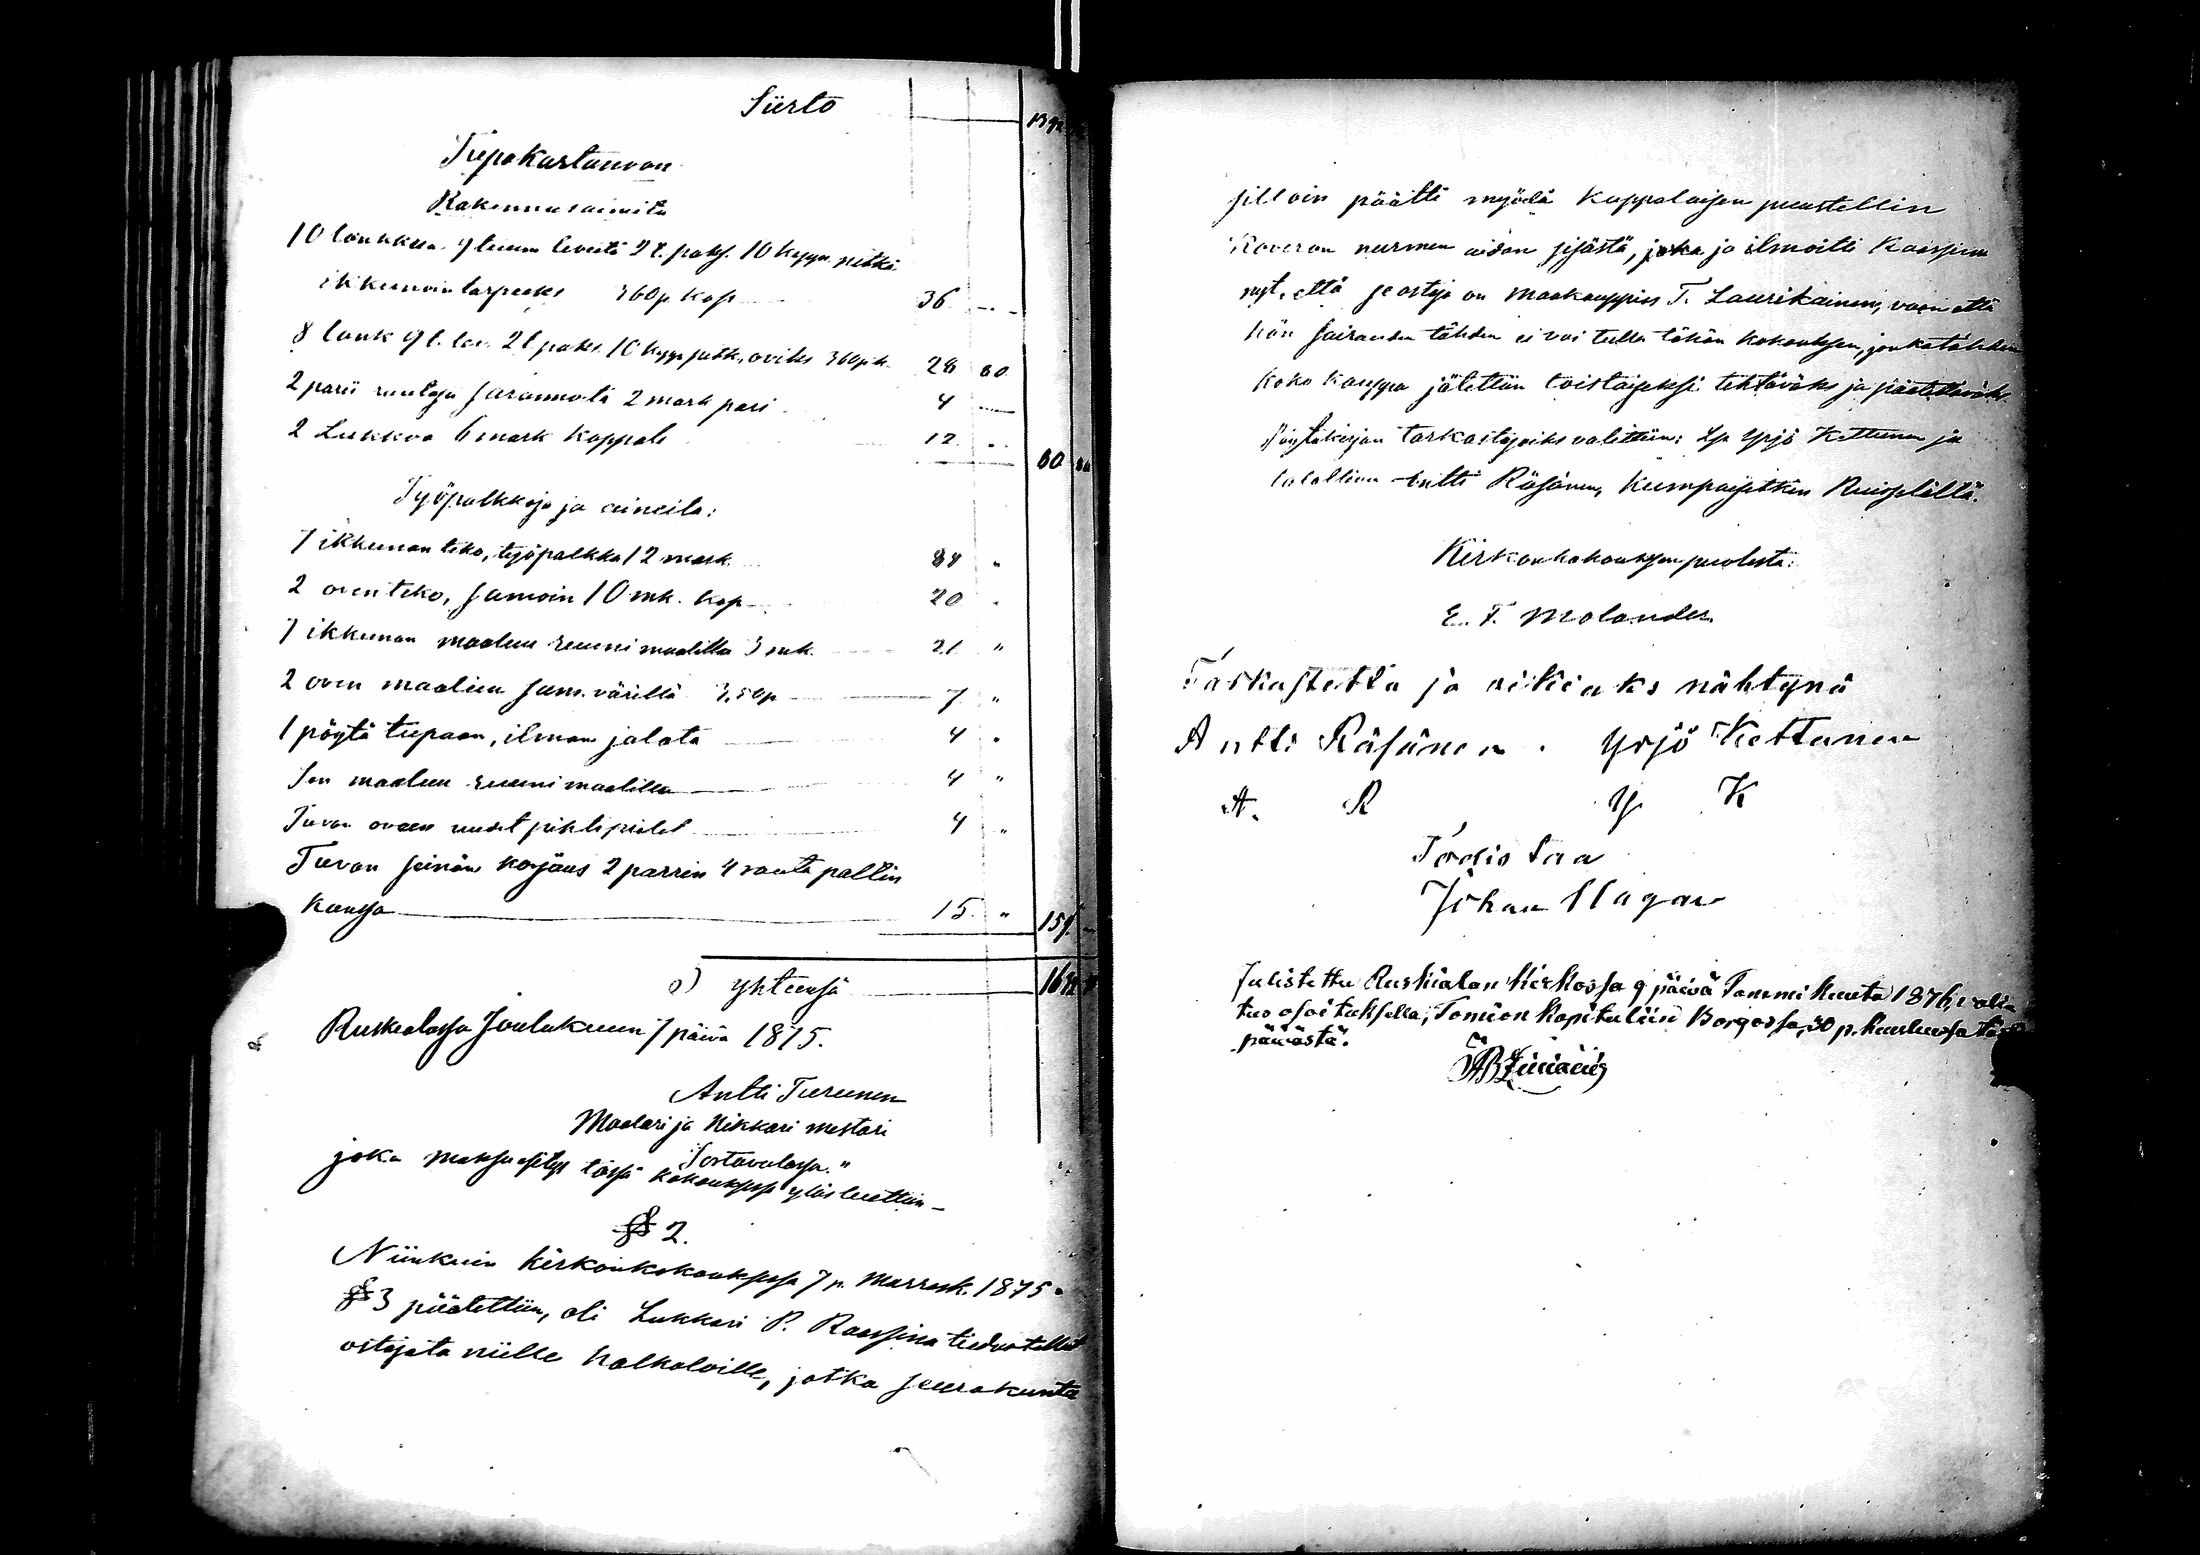 Siirto 1392
Tupakartanon
Rakennusaineita
10 lankkua 9 tuum leveitä 2 t. paks. 10 kyyn. pitkä
ikkunoin tarpeeks 360p kap 36 —
8 lank 9 t. lev. 2 t paks. 10 kyyn pitk., oviks 360p k. 28 80
2 parii ruuteja saranoita 2 mark pari 4 —
2 Lukkoa 6 mark kappale 12 "
80 80
Työpalkkoja ja aineita:
7 ikkunan teko, työpalkka 12 mark. 84 "
2 oven teko, samoin 10 mk. kap 20 "
7 ikkunan maaluu ruunimaalilla 3 mk. 21 "
2 oven maaluu sam. värillä 3,50p 7 "
1 pöytä tupaan, ilman jalata 4 "
Sen maaluu ruunimaalilla 4 "
Tuvan oveen uudet pihtipielet 4 "
Tuvan seinän korjaus 2 parrin 4 rauta pultin
kanssa 15 " 159 —
S) yhteensä 1632
Ruskealassa Joulukuun 7 päivä 1875.
Antti Turunen
Maalari ja Nikkari mestari
Sortavalassa."
joka maksuesitys tässä kokouksessa ylösluettiin —
§ 2.
Niinkuin kirkonkokouksessa 7 p. Marrask. 1875
§ 3 päätettiin, oli Lukkari P. Raassina tiedustellut
ostajata niille halkoloille, jotka seurakunta
silloin päätti myödä kappalaisen puustellin
Koveron nurmen aidan sisästä, joka ja ilmoitti Kaassina
nyt, että se ostaja on Maakauppias T. Laurikainen, vaan että
hän sairauden tähden ei voi tulla tähän kokouksen, jonkatähden
koko kauppa jätettiin toistaiseksi tehtäväks ja päätettäväks.
Pöytäkirjan tarkastajoiks valittiin: Lp. Yrjö Kettunen ja
talollinen Antti Räsänen, kumpaisetkin Ruisselältä.
Kirkonkokouksen puolesta:
E. F. Molander.
Tarkastettu ja oikiaks nähtynä
Antti Räsänen . Yrjö Kettunen
A. R Y K
Todistaa
Johan Hagan
Julistettu Ruskialan kirkossa 9 päivä Tammikuuta 1876, valitus
osoituksella, Tomiion kapituliin Borgossa, 30 p. kuulussa tästä
päivästä.